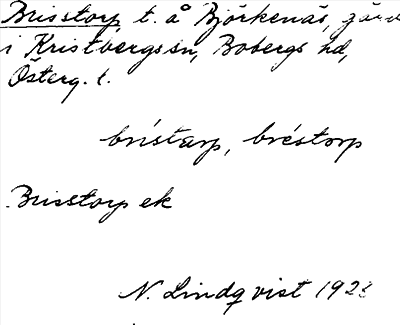 Brisstorp, t. å Björkenäs, gård
i Kristbergs sn, Bobergs hd,
Österg. l.
bristarp, bréstorp
Brisstorp ek
N. Lindqvist 1928